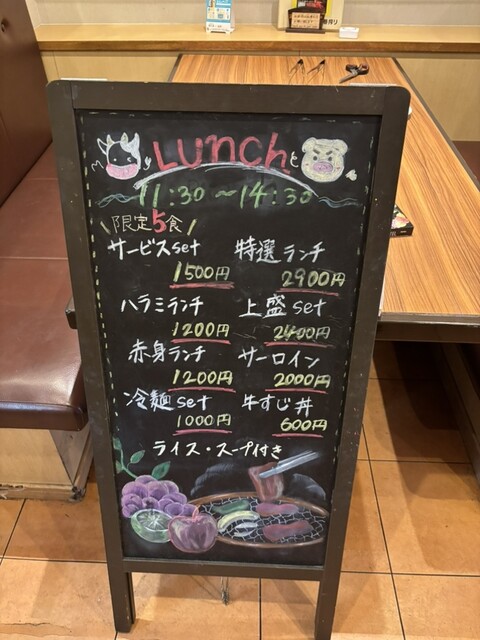 LUNCH
11:30 〜 14:30
\限定5食/
サービスset
1500円
特選ランチ
2900円
ハラミランチ
1200円
上盛set
2400円
赤身ランチ
1200円
サーロイン
2000円
冷麺set
1000円
牛すじ丼
600円
ライス・スープ付き